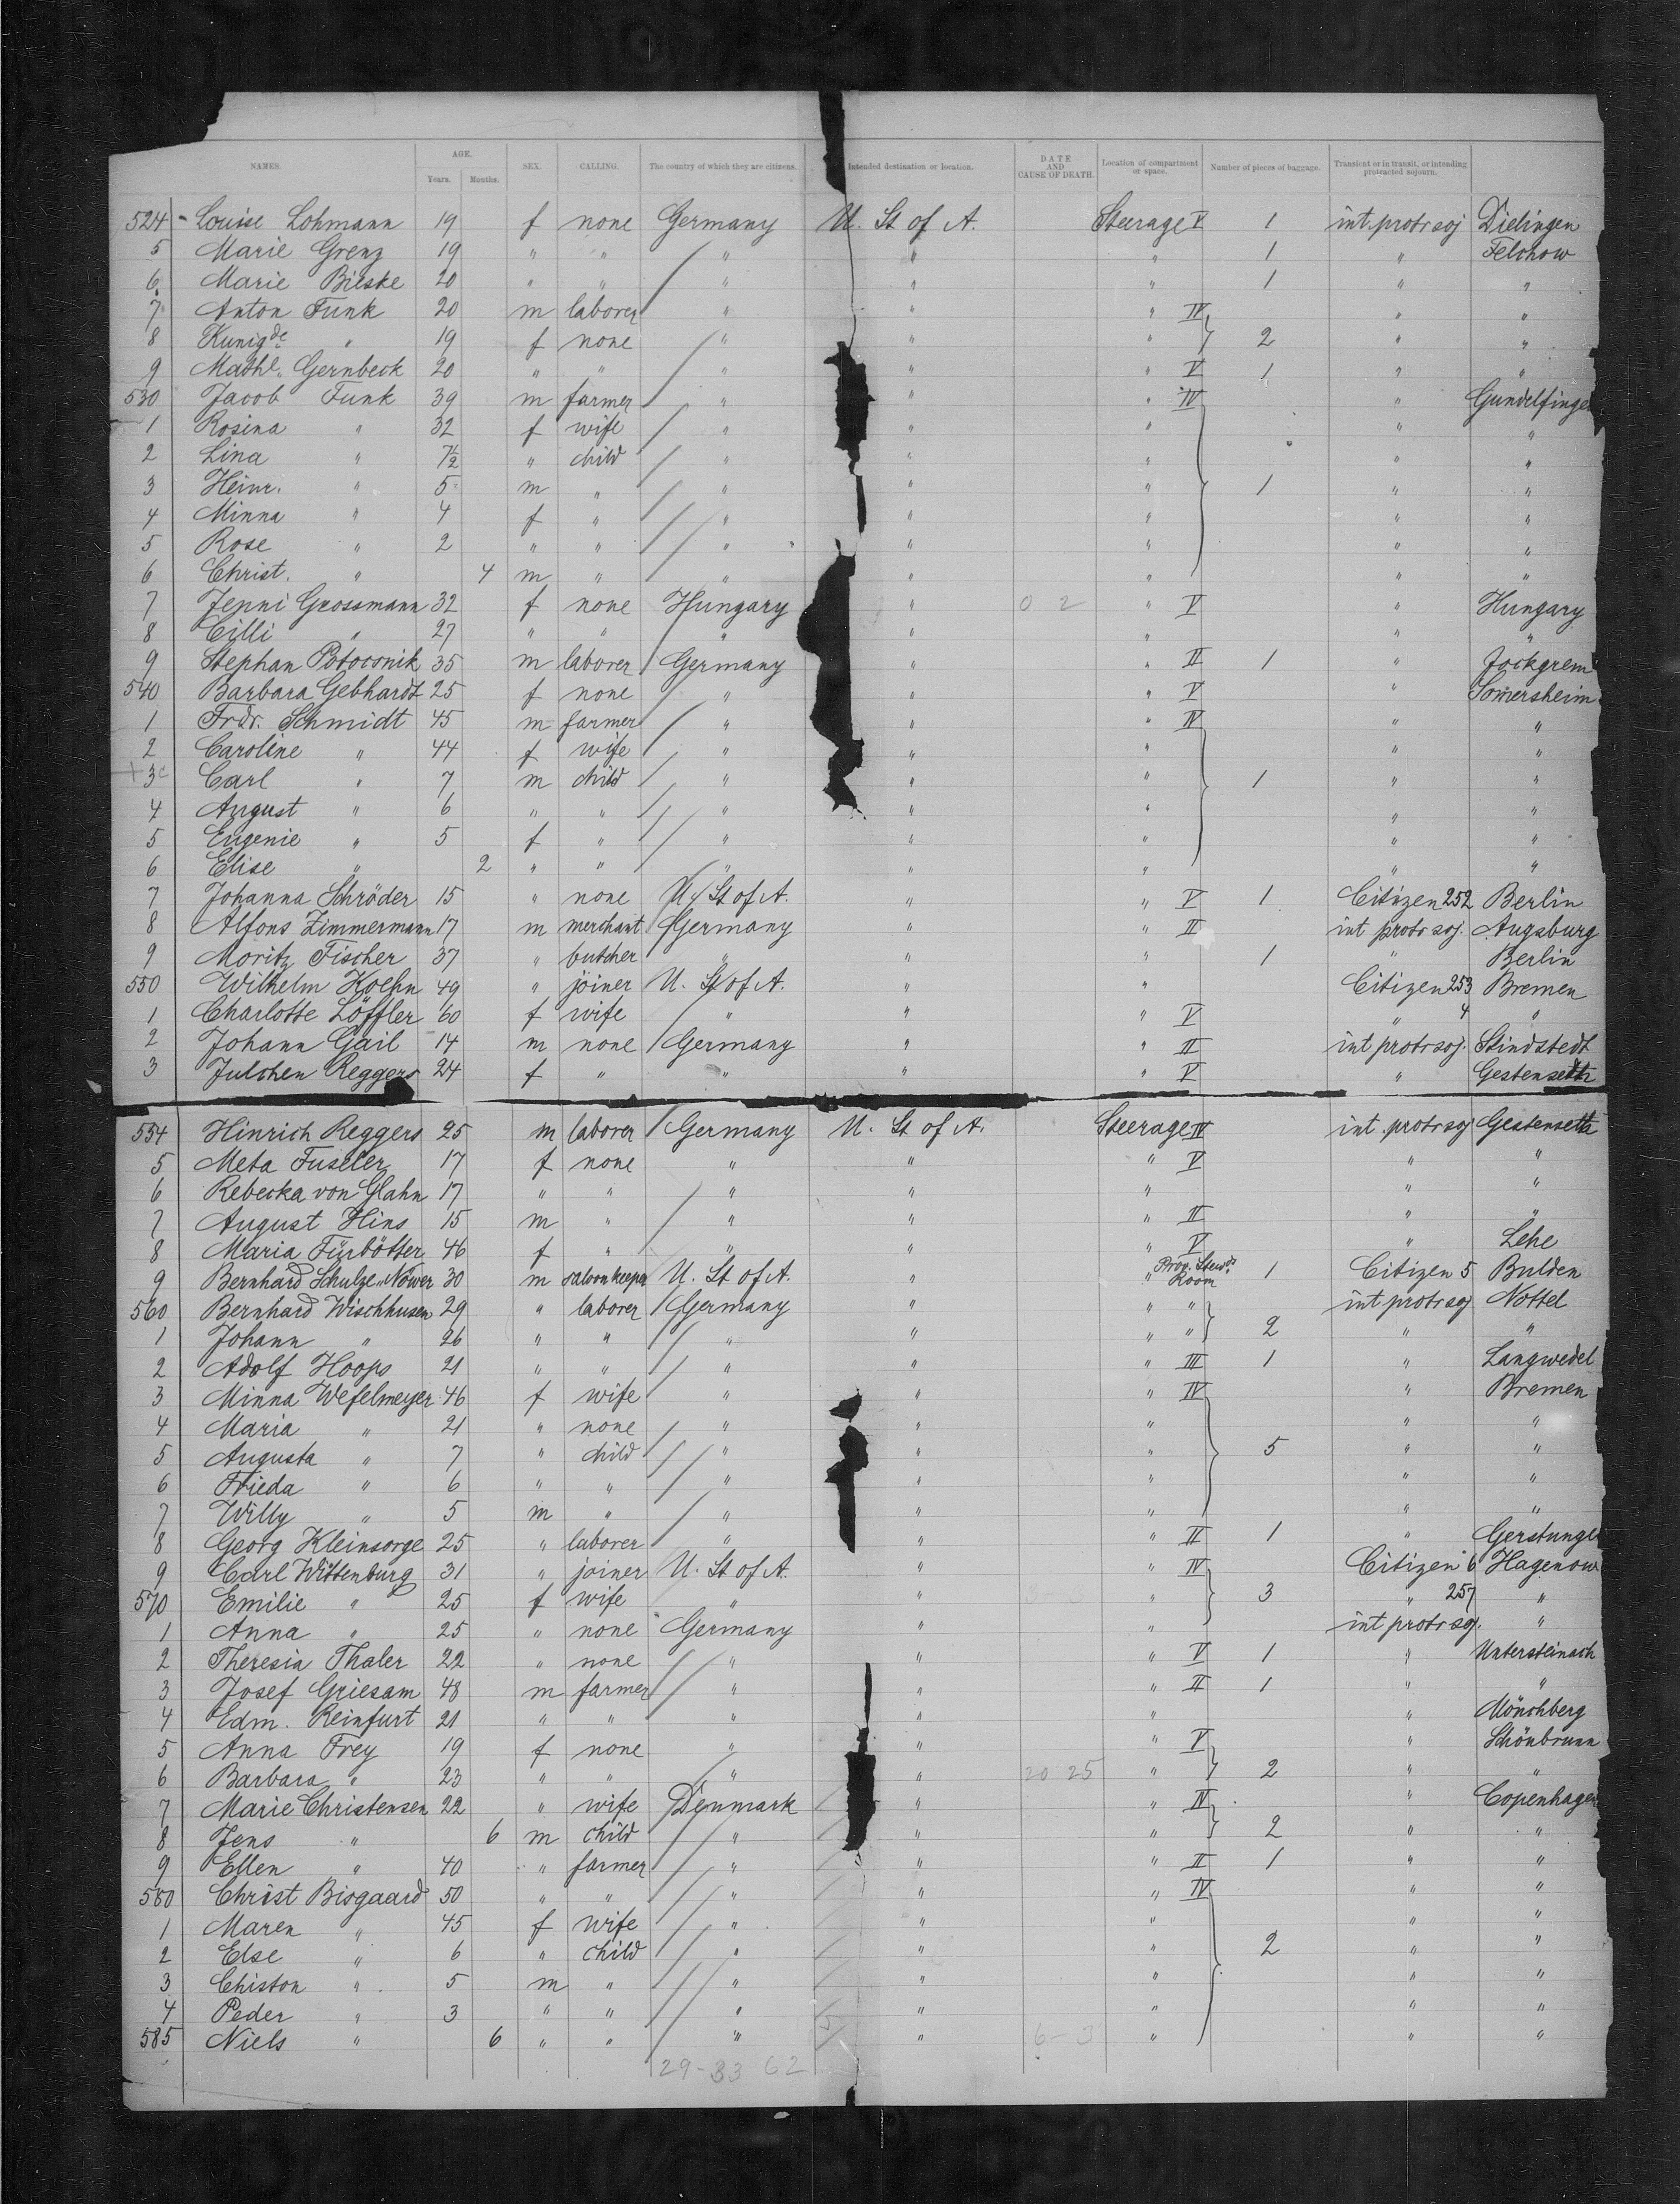 NAMES. AGE. Years. Months. SEX. CALLING. The country of which they are citizens. Intended destination or location. DATE AND CAUSE OF DEATH. Location of compartment or space. Number of pieces of baggage. Transient or in transit, or intending protracted sojourn.
524 - Louise Lohmann 19 f none Germany U. St of A. Steerage V 1 int. protr soj Dielingen
5 Marie Grenz 19 " " " " " 1 " Felchow
6 Marie Bieske 20 " " " " " 1 " "
7 Anton Funk 20 m laborer " " " IV " "
8 Kunigde " 19 f none " " " 2 " "
9 Mathl. Gernbeck 20 " " " " " V 1 " "
530 Jacob Funk 39 m farmer " " " IV " Gundelfinge
1 Rosina " 32 f wife " " " " "
2 Lina " 7½ " child " " " " "
3 Heinr. " 5 m " " " " 1 " "
4 Minna " 4 f " " " " " "
5 Rose " 2 " " " " " " "
6 Christ. " 4 m " " " " " "
7 Jenni Grossmann 32 f none Hungary " 0 2 " V " Hungary
8 Cilli " 27 " " " " " " "
9 Stephan Potoconik 35 m laborer Germany " " II 1 " Jockgrem
540 Barbara Gebhardt 25 f none " " " V " Somersheim
1 Frdr. Schmidt 45 m farmer " " " IV " "
2 Caroline " 44 f wife " " " " "
3 Carl " 7 m child " " " 1 " "
4 August " 6 " " " " " " "
5 Eugenie " 5 f " " " " " "
6 Elise " 2 " " " " " " "
7 Johanna Schröder 15 " none U. St of A. " " V 1 Citizen 252 Berlin
8 Alfons Zimmermann 17 m merchant Germany " " II int protr soj. Augsburg
9 Moritz Fischer 37 " butcher " " " 1 " Berlin
550 Wilhelm Koehn 49 " joiner U. St of A. " " Citizen 253 Bremen
1 Charlotte Löffler 60 f wife " " " V " 4 "
2 Johann Gail 14 m none Germany " " II int protr soj. Stindstedt
3 Julchen Reggers 24 f " " " " V " Gestenseth
554 Hinrich Reggers 25 m laborer Germany U. St of A. Steerage II int. protr soj Gestenseth
5 Meta Fuseler 17 f none " " " V " "
6 Rebecka von Glahn 17 " " " " " " "
7 August Hins 15 m " " " " II " "
8 Maria Fürbötter 46 f " " " " V " Lehe
9 Bernhard Schulze-Nower 30 m saloonkeeper U. St of A. " " Prov. Stewds Room 1 Citizen 5 Bulden
560 Bernhard Wischhusen 29 " laborer Germany " " " int protr soj Nottel
1 Johann " 26 " " " " " " 2 " "
2 Adolf Hoops 21 " " " " " III 1 " Langwedel
3 Minna Wefelmeyer 46 f wife " " " IV " Bremen
4 Maria " 21 " none " " " " "
5 Augusta " 7 " child " " " 5 " "
6 Frieda " 6 " " " " " " "
7 Willy " 5 m " " " " " "
8 Georg Kleinsorge 25 " laborer " " " II 1 " Gerstunge
9 Carl Wittenburg 31 " joiner U. St of A. " " IV Citizen 6 Hagenow
570 Emilie " 25 f wife " " " 3 " 257 "
1 Anna " 25 " none Germany " " int protr soj. "
2 Theresia Thaler 22 " none " " " V 1 " Untersteinach
3 Josef Griesam 48 m farmer " " " II 1 " "
4 Edm. Reinfurt 21 " " " " " " Mönchberg
5 Anna Frey 19 f none " " " V " Schönbrunn
6 Barbara " 23 " " " " 20 25 " 2 " "
7 Marie Christensen 22 " wife Denmark " " IV " Copenhagen
8 Jens " 6 m child " " " 2 " "
9 Ellen " 40 " farmer " " " II 1 " "
580 Christ Bisgaard 50 " " " " " IV " "
1 Maren " 45 f wife " " " " "
2 Else " 6 " child " " " 2 " "
3 Chiston " 5 m " " " " " "
4 Peder " 3 " " " " " " "
585 Niels " 6 " " " " 6-3 " " "
29-33 62